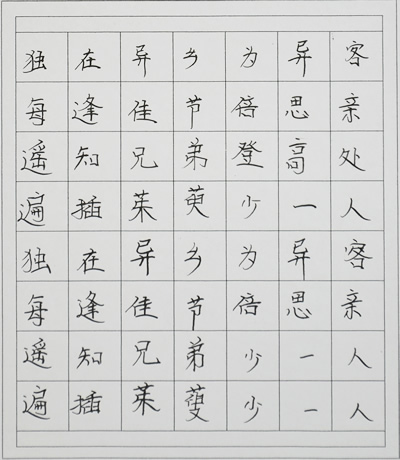 独在异乡为异客
每逢佳节倍思亲
遥知兄弟登高处
遍插茱萸少一人
独在异乡为异客
每逢佳节倍思亲
遥知兄弟少一人
遍插茱少一人